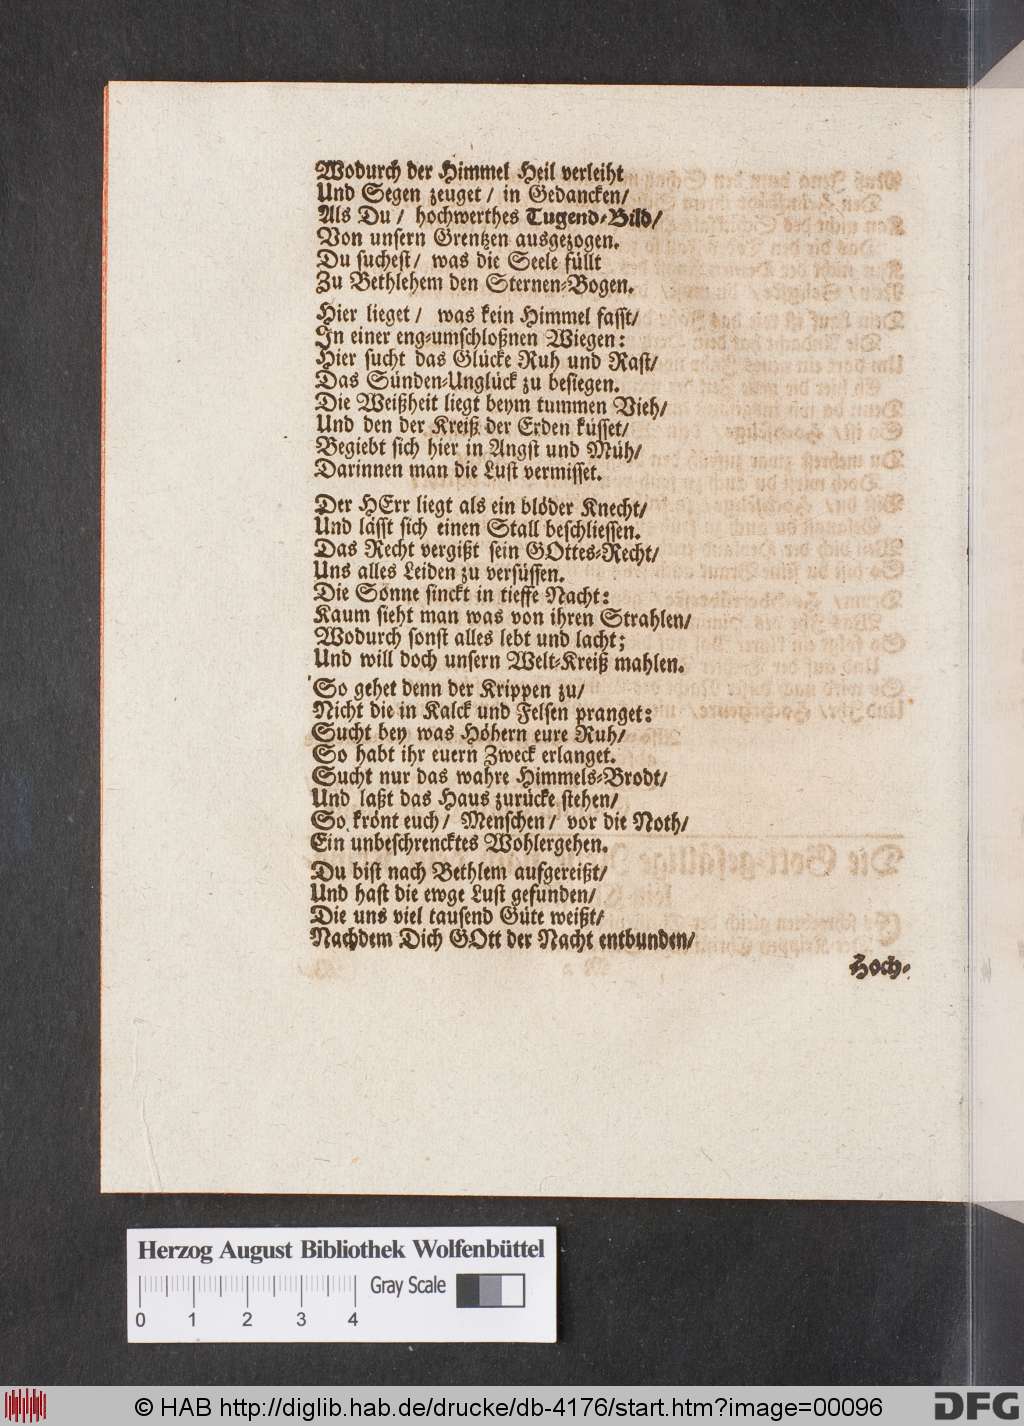 Wodurch der Himmel Heil verleiht
Und Segen zeuget / in Gedancken/
Als Du / hochwerthes Tugend-Bild/
Von unsern Grentzen ausgezogen.
Du suchest / was die Seele füllt
Zu Bethlehem den Sternen-Bogen.
Hier lieget / was kein Himmel fasst/
In einer eng-umschloßnen Wiegen:
Hier sucht das Glücke Ruh und Rast/
Das Sünden-Unglück zu besiegen.
Die Weißheit liegt beym tummen Vieh/
Und den der Kreiß der Erden küsset/
Begiebt sich hier in Angst und Müh/
Darinnen man die Lust vermisset.
Der HErr liegt als ein blöder Knecht/
Und lässt sich einen Stall beschliessen.
Das Recht vergißt sein GOttes-Recht/
Uns alles Leiden zu versüssen.
Die Sonne sinckt in tieffe Nacht:
Kaum sieht man was von ihren Strahlen/
Wodurch sonst alles lebt und lacht;
Und will doch unsern Welt-Kreiß mahlen.
So gehet denn der Krippen zu/
Nicht die in Kalck und Felsen pranget:
Sucht bey was Höhern eure Ruh/
So habt ihr euern Zweck erlanget.
Sucht nur das wahre Himmels-Brodt/
Und laßt das Haus zurücke stehen/
So krönt euch / Menschen / vor die Noth/
Ein unbeschrencktes Wohlergehen.
Du bist nach Bethlem aufgereißt/
Und hast die ewge Lust gefunden/
Die uns viel tausend Güte weißt/
Nachdem Dich GOtt der Nacht entbunden/
Hoch-
Herzog August Bibliothek Wolfenbüttel
Gray Scale
0 1 2 3 4
© HAB http://diglib.hab.de/drucke/db-4176/start.htm?image=00096
DFG